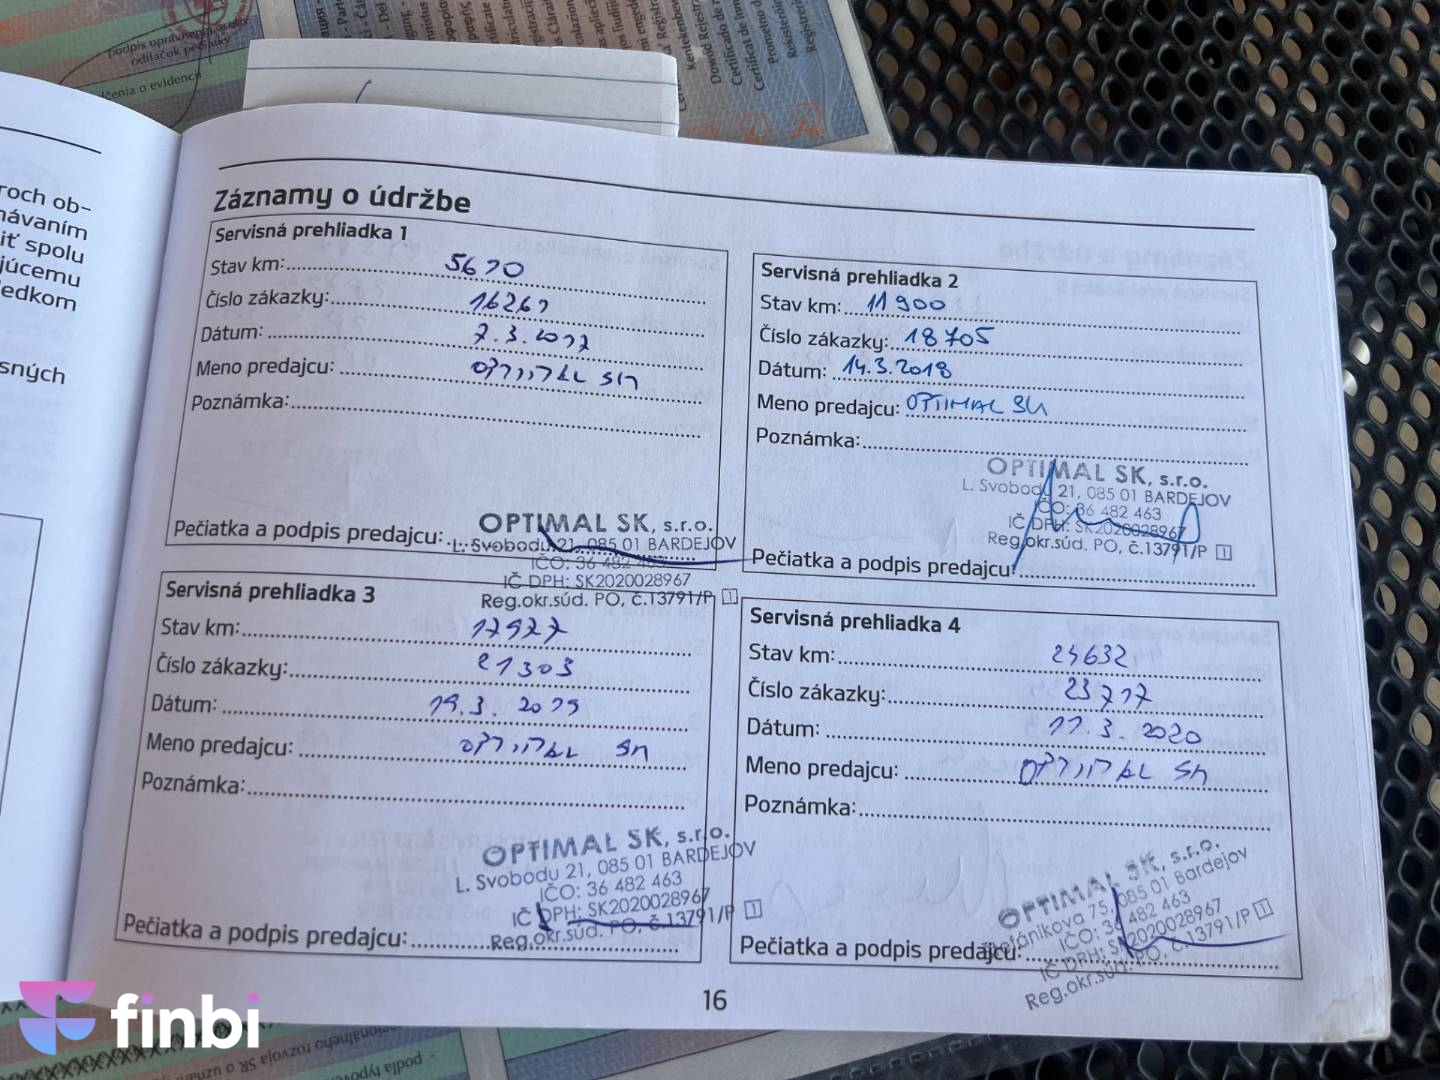 podpis oprávne
odtlačok pečiatky
dčenia o evidencii
roch ob-
návaním
iť spolu
júcemu
ledkom
sných
Záznamy o údržbe
Servisná prehliadka 1
Stav km: 5670
Číslo zákazky: 16267
Dátum: 7.3.2017
Meno predajcu: OPTIMAL SK
Poznámka:
Pečiatka a podpis predajcu:
OPTIMAL SK, s.r.o.
L. Svobodu 21, 085 01 BARDEJOV
IČO: 36 482 463
IČ DPH: SK2020028967
Reg.okr.súd. PO, č.13791/P 1
Servisná prehliadka 2
Stav km: 11 900
Číslo zákazky: 18705
Dátum: 14.3.2018
Meno predajcu: OPTIMAL SK
Poznámka:
OPTIMAL SK, s.r.o.
L. Svobodu 21, 085 01 BARDEJOV
IČO: 36 482 463
IČ DPH: SK2020028967
Reg.okr.súd. PO, č.13791/P 1
Pečiatka a podpis predajcu:
Servisná prehliadka 3
Stav km: 17927
Číslo zákazky: 21303
Dátum: 19.3. 2019
Meno predajcu: OPTIMAL SK
Poznámka:
OPTIMAL SK, s.r.o.
L. Svobodu 21, 085 01 BARDEJOV
IČO: 36 482 463
IČ DPH: SK2020028967
Reg.okr.súd. PO, č.13791/P 1
Pečiatka a podpis predajcu:
Servisná prehliadka 4
Stav km: 24632
Číslo zákazky: 23717
Dátum: 17.3.2020
Meno predajcu: OPTIMAL SK
Poznámka:
OPTIMAL SK, s.r.o.
Štefánikova 75, 085 01 Bardejov
IČO: 36 482 463
IČ DPH: SK2020028967
Reg.okr.súd. PO, č.13791/P 1
Pečiatka a podpis predajcu:
16
finbi